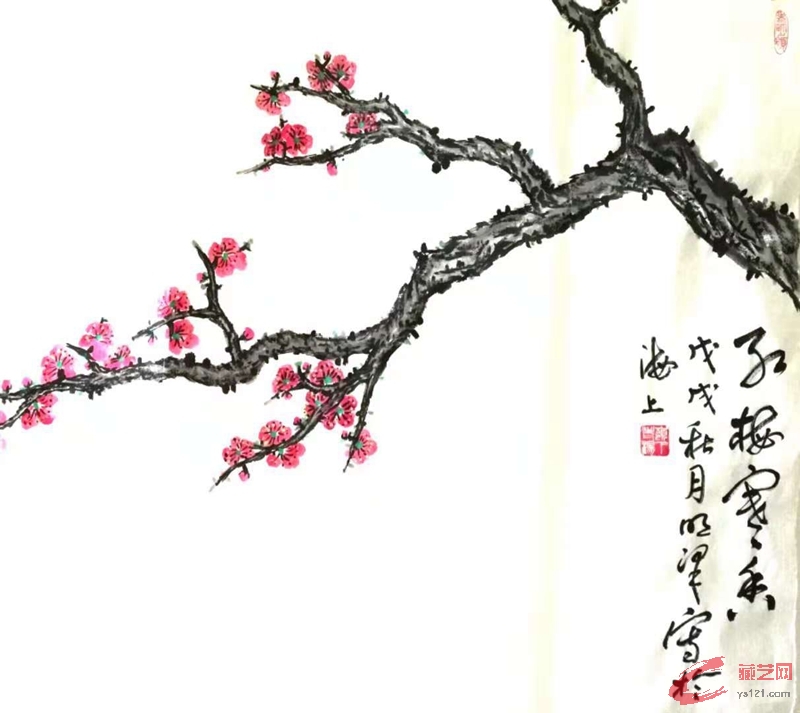 红梅寒香
戊戌秋月明泽写于
海上
藏艺网
ys121.com